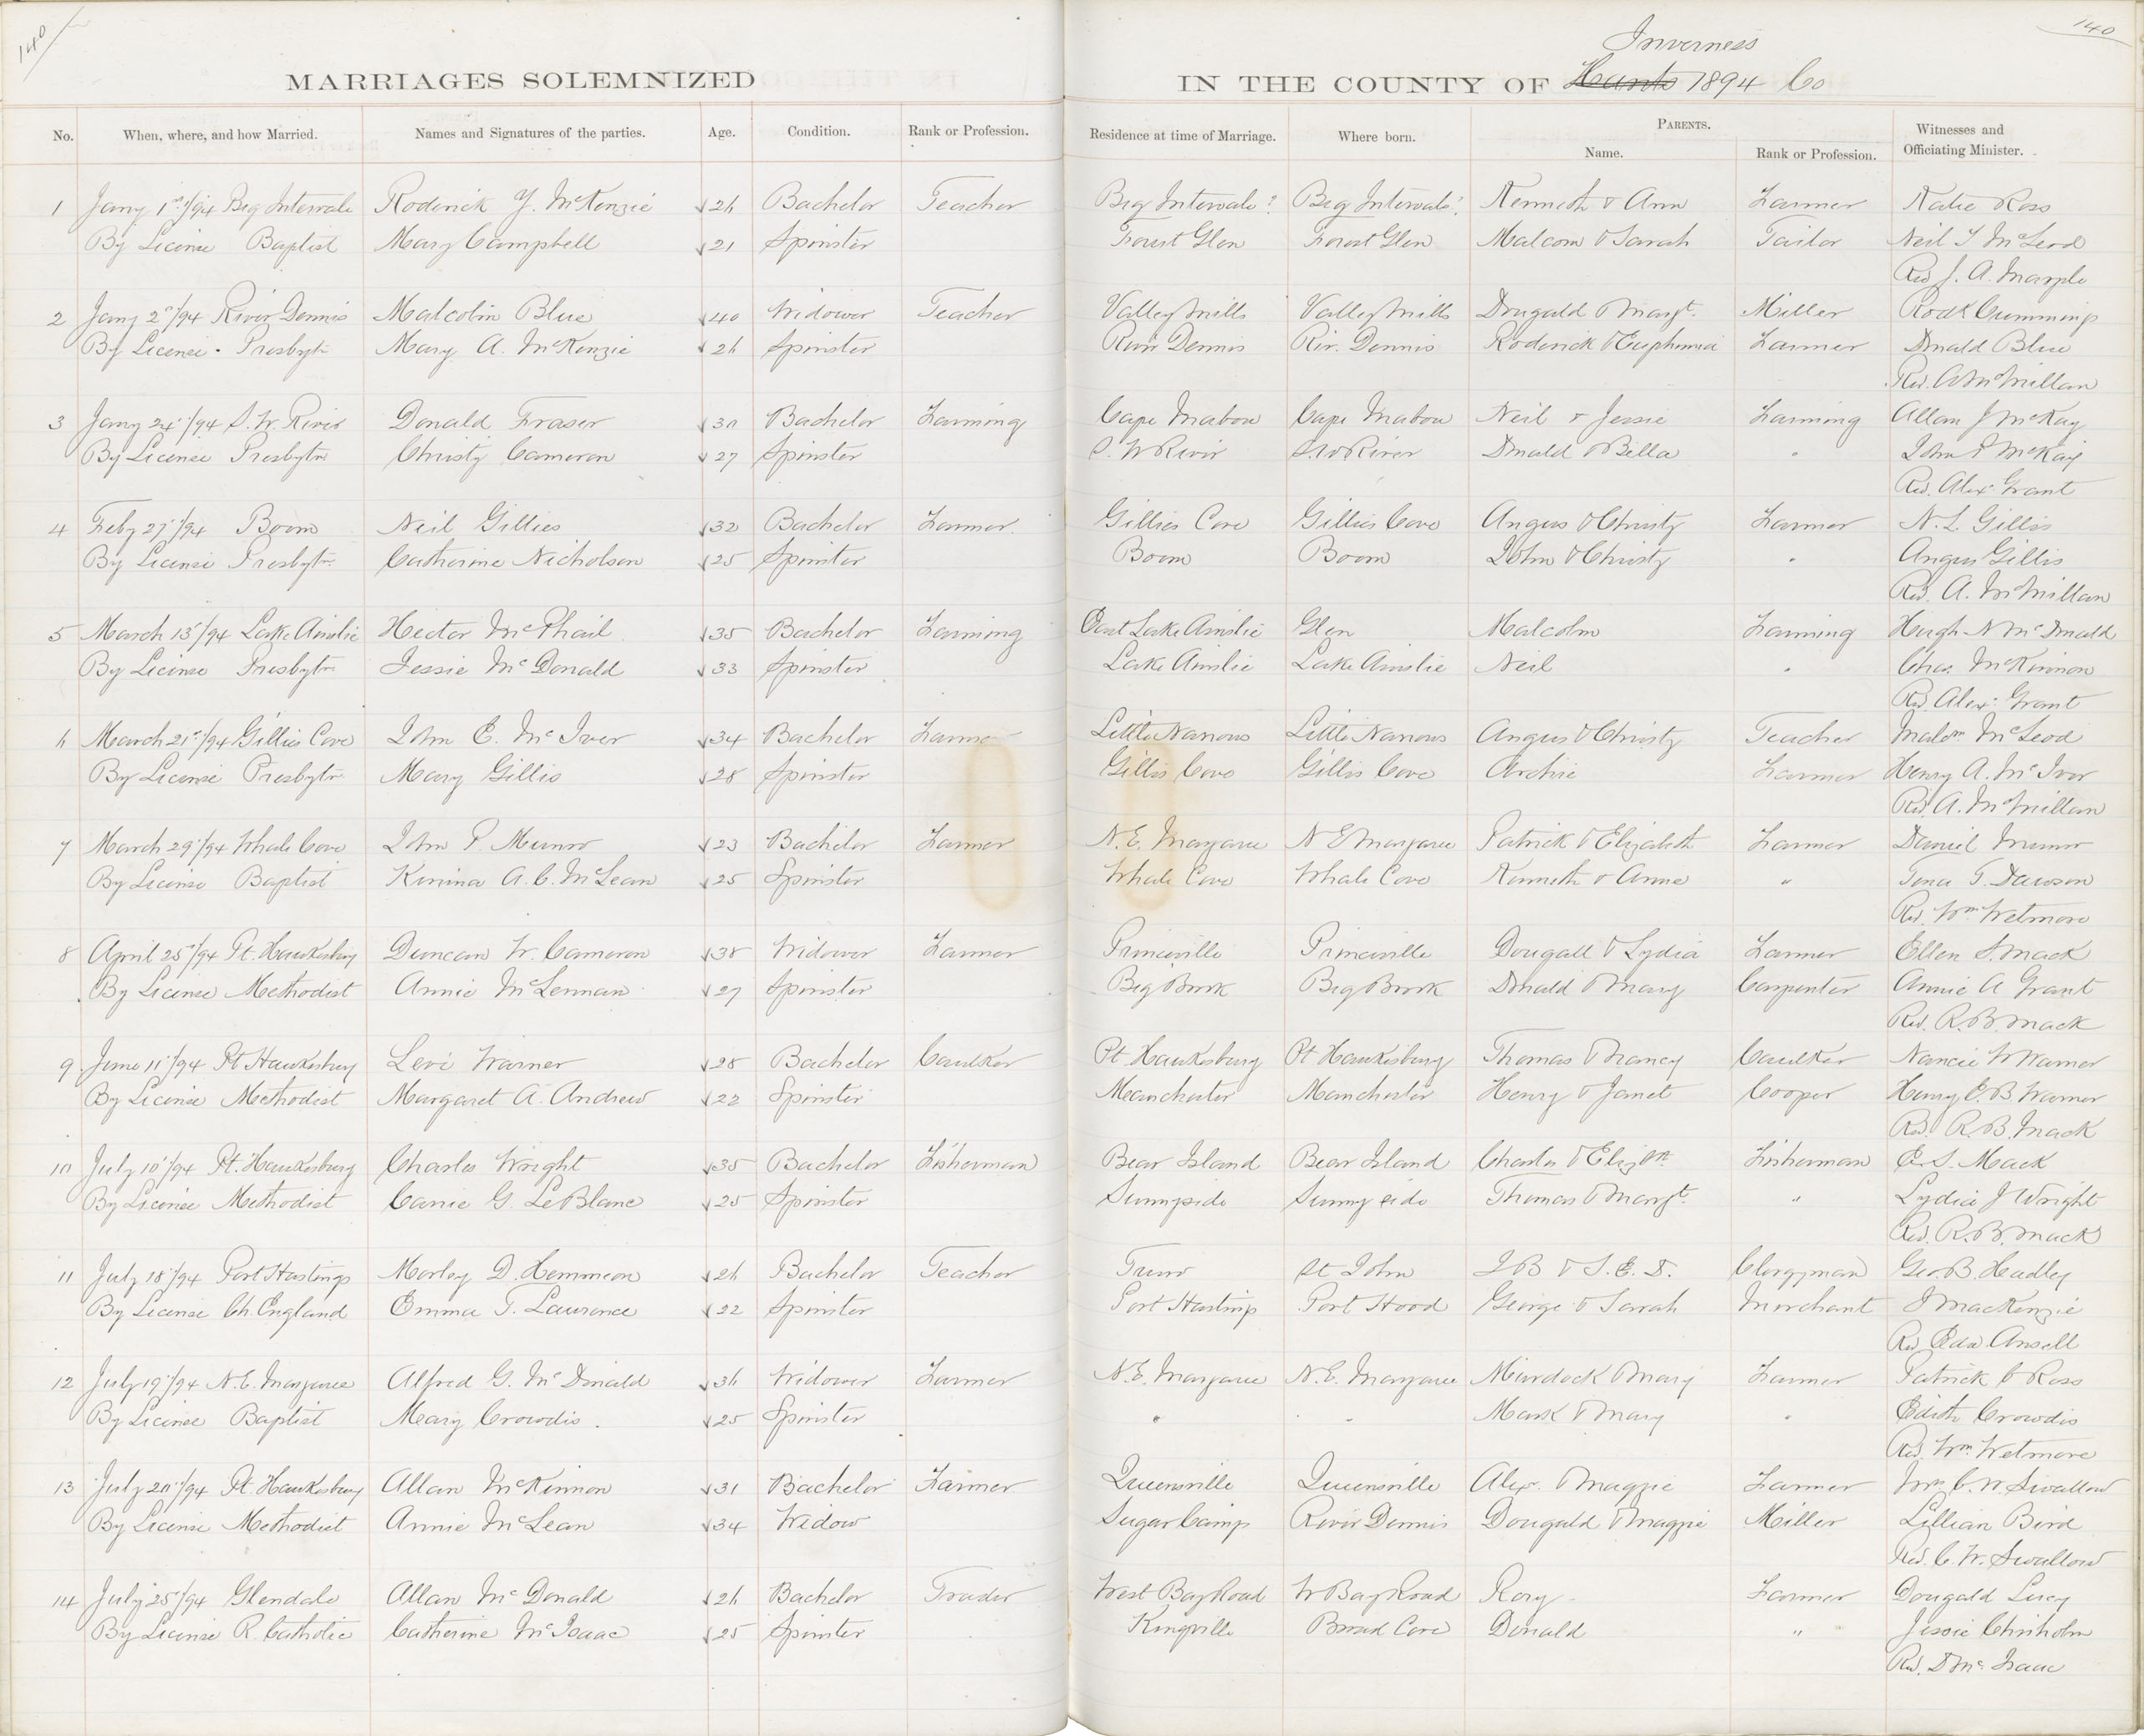 140
140
Inverness
MARRIAGES SOLEMNIZED IN THE COUNTY OF Hants 1894 Co
No. When, where, and how Married. Names and Signatures of the parties. Age. Condition. Rank or Profession. Residence at time of Marriage. Where born. PARENTS. Witnesses and
Name. Rank or Profession. Officiating Minister.
1 Jany 1st/94 Big Intervale Roderick Y. McKenzie 26 Bachelor Teacher Big Intervale Big Intervale Kenneth & Ann Farmer Katie Ross
By License Baptist Mary Campbell 21 Spinster Forest Glen Forest Glen Malcom & Sarah Tailor Neil McLeod
Rev J. A. Marple
2 Jany 2d/94 River Dennis Malcolm Blue 40 Widower Teacher Valley Mills Valley Mills Dougald & Margt. Miller Rodk Cummings
By License Presbytn Mary A. McKenzie 26 Spinster River Dennis Riv. Dennis Roderick & Euphemia Farmer Donald Blue
Rev. A McMillan
3 Jany 24/94 S. W. River Donald Fraser 30 Bachelor Farming Cape Mabou Cape Mabou Neil & Jessie Farming Allan J McKay
By License Presbytn Christy Cameron 27 Spinster S. W River S. W River Donald & Bella " John McKay
Rev. Alex. Grant
4 Feby 27/94 Boom Neil Gillies 32 Bachelor Farmer Gillies Cove Gillies Cove Angus & Christy Farmer N. L. Gillis
By License Presbytn Catherine Nicholson 25 Spinster Boom Boom John & Christy " Angus Gillis
Rev. A. McMillan
5 March 13/94 Lake Ainslie Hector McPhail 35 Bachelor Farming East Lake Ainslie Glen Malcolm Farming Hugh N McDonald
By License Presbytn Jessie McDonald 33 Spinster Lake Ainslie Lake Ainslie Neil " Chas. McKinnon
Rev. Alex. Grant
6 March 21st/94 Gillies Cove John E. McIver 34 Bachelor Farmer Little Narrows Little Narrows Angus & Christy Teacher Malcm McLeod
By License Presbytn Mary Gillis 28 Spinster Gillis Cove Gillis Cove Archie Farmer Henry A. McIver
Rev. A. McMillan
7 March 29/94 Whale Cove John P. Munro 23 Bachelor Farmer N. E. Margaree N E Margaree Patrick & Elizabeth Farmer Daniel Munro
By License Baptist A. C. McLean 25 Spinster Whale Cove Whale Cove Kenneth & Anne " Tena T. Dawson
Rev. Wm Wetmore
8 April 25/94 Pt. Hawkesbury Duncan W. Cameron 38 Widower Farmer Princeville Princeville Dougall & Lydia Farmer Ellen S. Mack
By License Methodist Annie McLennan 27 Spinster Big Brook Big Brook Donald & Mary Carpenter Annie A Grant
Rev. R. B. Mack
9 June 11/94 Pt Hawkesbury Levi Warner 28 Bachelor Caulker Pt Hawkesbury Pt Hawkesbury Thomas & Nancy Caulker Nancie W Warner
By License Methodist Margaret A. Andrew 22 Spinster Manchester Manchester Henry & Janet Cooper Henry E. B Warner
Rev. R. B. Mack
10 July 10/94 Pt. Hawkesbury Charles Wright 35 Bachelor Fisherman Bear Island Bear Island Charles & Elizbth Fisherman E. S. Mack
By License Methodist Carrie G. LeBlanc 25 Spinster Sunnyside Sunny side Thomas & Margt. " Lydia J Wright
Rev. R. B. Mack
11 July 18/94 Port Hastings Morley D. Hemmeon 26 Bachelor Teacher Truro St John J B & S. E. D. Clergyman Geo. B. Hadley
By License Ch. England Emma T. Laurence 22 Spinster Port Hastings Port Hood George & Sarah Merchant J MacKenzie
Rev Ansell
12 July 19/94 N. E. Margaree Alfred G. McDonald 36 Widower Farmer N. E. Margaree N. E. Margaree Murdock & Mary Farmer Patrick Ross
By License Baptist Mary Crowdis 25 Spinster " " Mark & Mary " Edith Crowdis
Rev. Wm. Wetmore
13 July 20/94 Pt. Hawkesbury Allan McKinnon 31 Bachelor Farmer Queensville Queensville Alex. & Maggie Farmer Mrs. C. W. Swallow
By License Methodist Annie McLean 34 Widow Sugar Camp River Dennis Dougald & Maggie Miller Lillian Bird
Rev. C. W. Swallow
14 July 25/94 Glendale Allan McDonald 26 Bachelor Trader West Bay Road W Bay Road Rory Farmer Dougald Lucy
By License R. Catholic Catherine McIsaac 25 Spinster Kingville Broad Cove Donald " Jessie Chisholm
Rev. D McIsaac